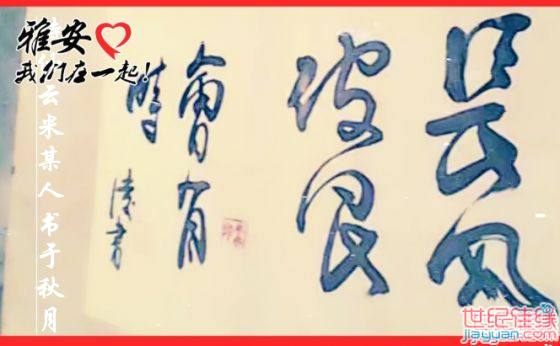 雅安
我们在一起!
長風
破浪
會有
時
书
云米某人书于秋月
世纪佳缘
jiayuan.com